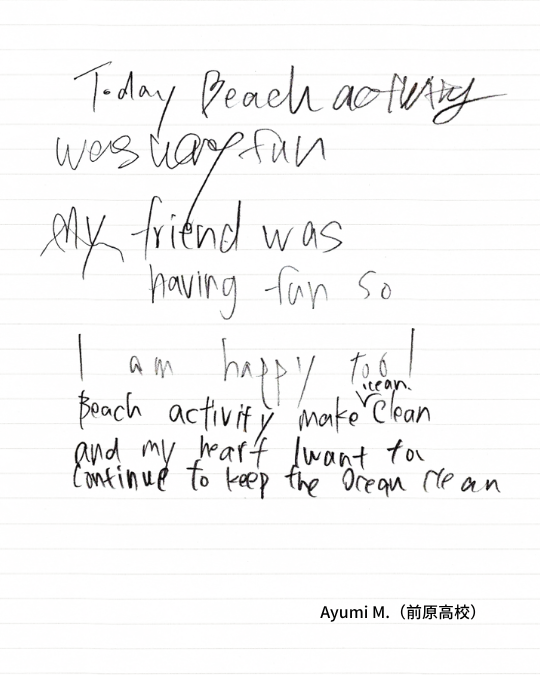 Today Beach activity
was very fun
My friend was
having fun so
I am happy too!
Beach activity make ocean Clean
and my heart I want to
continue to keep the Ocean clean
Ayumi M.（前原高校）